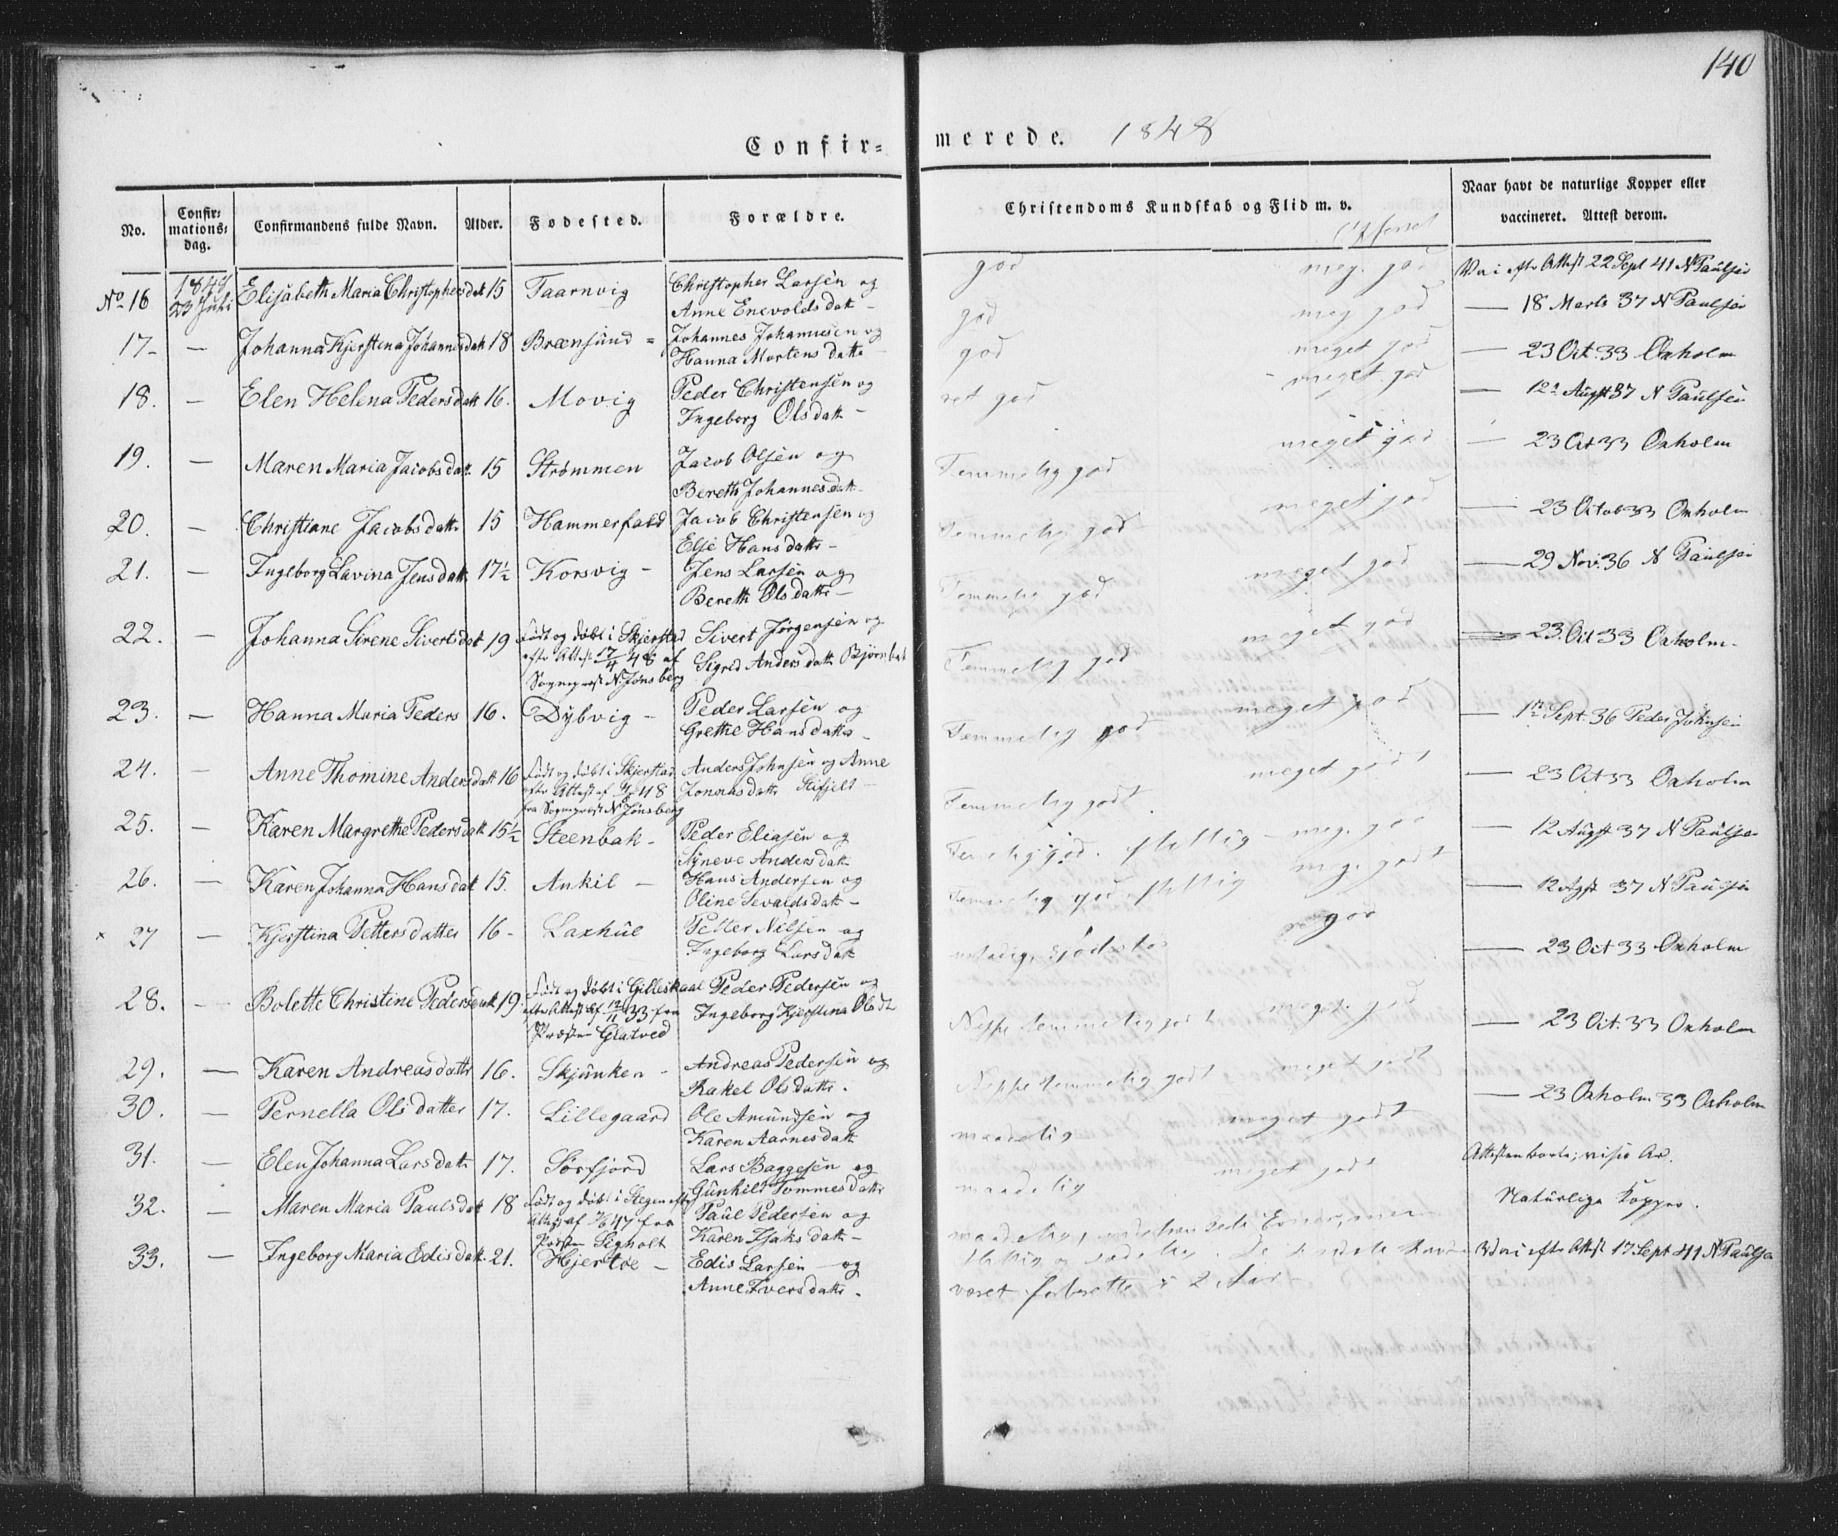 140
Confir= merede. 1848
No.
Confir=
mations=
dag.
Confirmandens fulde Navn.
Alder.
Fødested.
Forældre.
Christendoms Kundskab og Flid m. v.
Naar havt de naturlige Kopper eller
vaccineret. Attest derom.
No 16 1848 23 Juli Elisabeth Maria Christophersdatt 15 Taarnvig Christopher Larsen og
Anne Enevoldsdatt - god meg. god Vac efter Attest 22 Sept 41 N Paulsen
17 - — Johanna Kjerstina Johannesdatt 18 Brænsund = Johannes Johannesen og
Hanna Mortens datte god meg god — 18 Marts 37 N Paulsen
18. — Elen Helena Pedersdatt 16. Movig Peder Christensen og
Ingeborg Olsdatt - god meget god — 23 Oct. 33 Oxholm
ret god meget god — 12 Augst 37 N Paulsen
19. — Maren Maria Jacobsdatt. 15 Strømmen Jacob Olsen og
Bereth Johannesdatt. Temmelig god meget god — 23 Oct 33 Oxholm
20. — Christiane Jacobsdatte 15 Hammerfald Jacob Christensen og
Else Hansdatte - Temmelig god meget god 23 Octob 33 Oxholm
21. — Ingeborg Lavina Jensdatt. 17½ Korsvig - Jens Larsen og
Bereth Olsdatte - Temmelig god meget god — 29 Nov. 36 N Paulsen
22. — Johanna Sirene Sivertsdat 19 Født og døbt i Skjerstad
efter Attest 17/4 48 af
Sogneprest N. Jonsberg Sivert Jørgensen og
Sigrid Andersdatt Bjørnbak Temmelig god meget god — 23 Oct 33 Oxholm.
23. — Hanna Maria Peders 16. Dybvig - Peder Larsen og
Grethe Hansdatte - Temmelig god meget god — 1 Sept. 36 Peder Johnsen
24. — Anne Thomine Andersdatt 16 Født og døbt i Skjerstad
efter Attest af 48
fra Sogneprest N. Jonsberg Anders Johnsen og Anne
Jonasdatte Temmelig godt. meget godt — 23 Oct 33 Oxholm
25. — Karen Margrethe Pedersdatt 15½ Steenbak - Peder Eliasen og
Synneve Andersdatt god. flittig meg. god — 12 Augst 37 N Paulsen
26. — Karen Johanna Hansdat 15. Ankil - Hans Andersen og
Oline Sevaldsdatt - Temmelig god flittig meg. godt — 12 Agst 37 N Paulsen
× 27 — Kjerstina Pettersdatter 16 - Laxhul Petter Nilsen og
Ingeborg Larsdatt god — 23 Oct 33 Oxholm
28. — Bolette Christine Pedersdatt 19. Født og døbt i Gilleskaal
efter Attest af 33 fra
Præsten Glatved Peder Pedersen og
Ingeborg Kjerstina Olsdt Neppe temmelig godt meget god — 23 Oct. 33 Oxholm
29. — Karen Andreasdatte 16. Skjunken - Andreas Pedersen og
Rakel Olsdatte. Neppe temmelig godt meget godt
30. — Pernella Olsdatter 17. Lillegaard Ole Amundsen og
Karen Aarnesdatt maadelig meget godt — 23 Oxholm 33 Oxholm
31. — Elen Johanna Larsdatt 17. Sørfjord Lars Baggesen og
Gunhild Tommesdatte maadelig meget godt Attesten borte; visio Ar.
32. — Maren Maria Paulsdat 18 Født og døbt i Stegen efter
Attest af 47 fra
Præsten Sigholt Paul Pedersen og
Karen Isaksdatt - Naturlige Kopper.
33. — Ingeborg Maria Edisdatt. 21. Hjertøe - Edis Larsen — og
Anne Iversdatte. Vac efter Attest 17 Sept 41 N Paulsen
været i 2 Aar